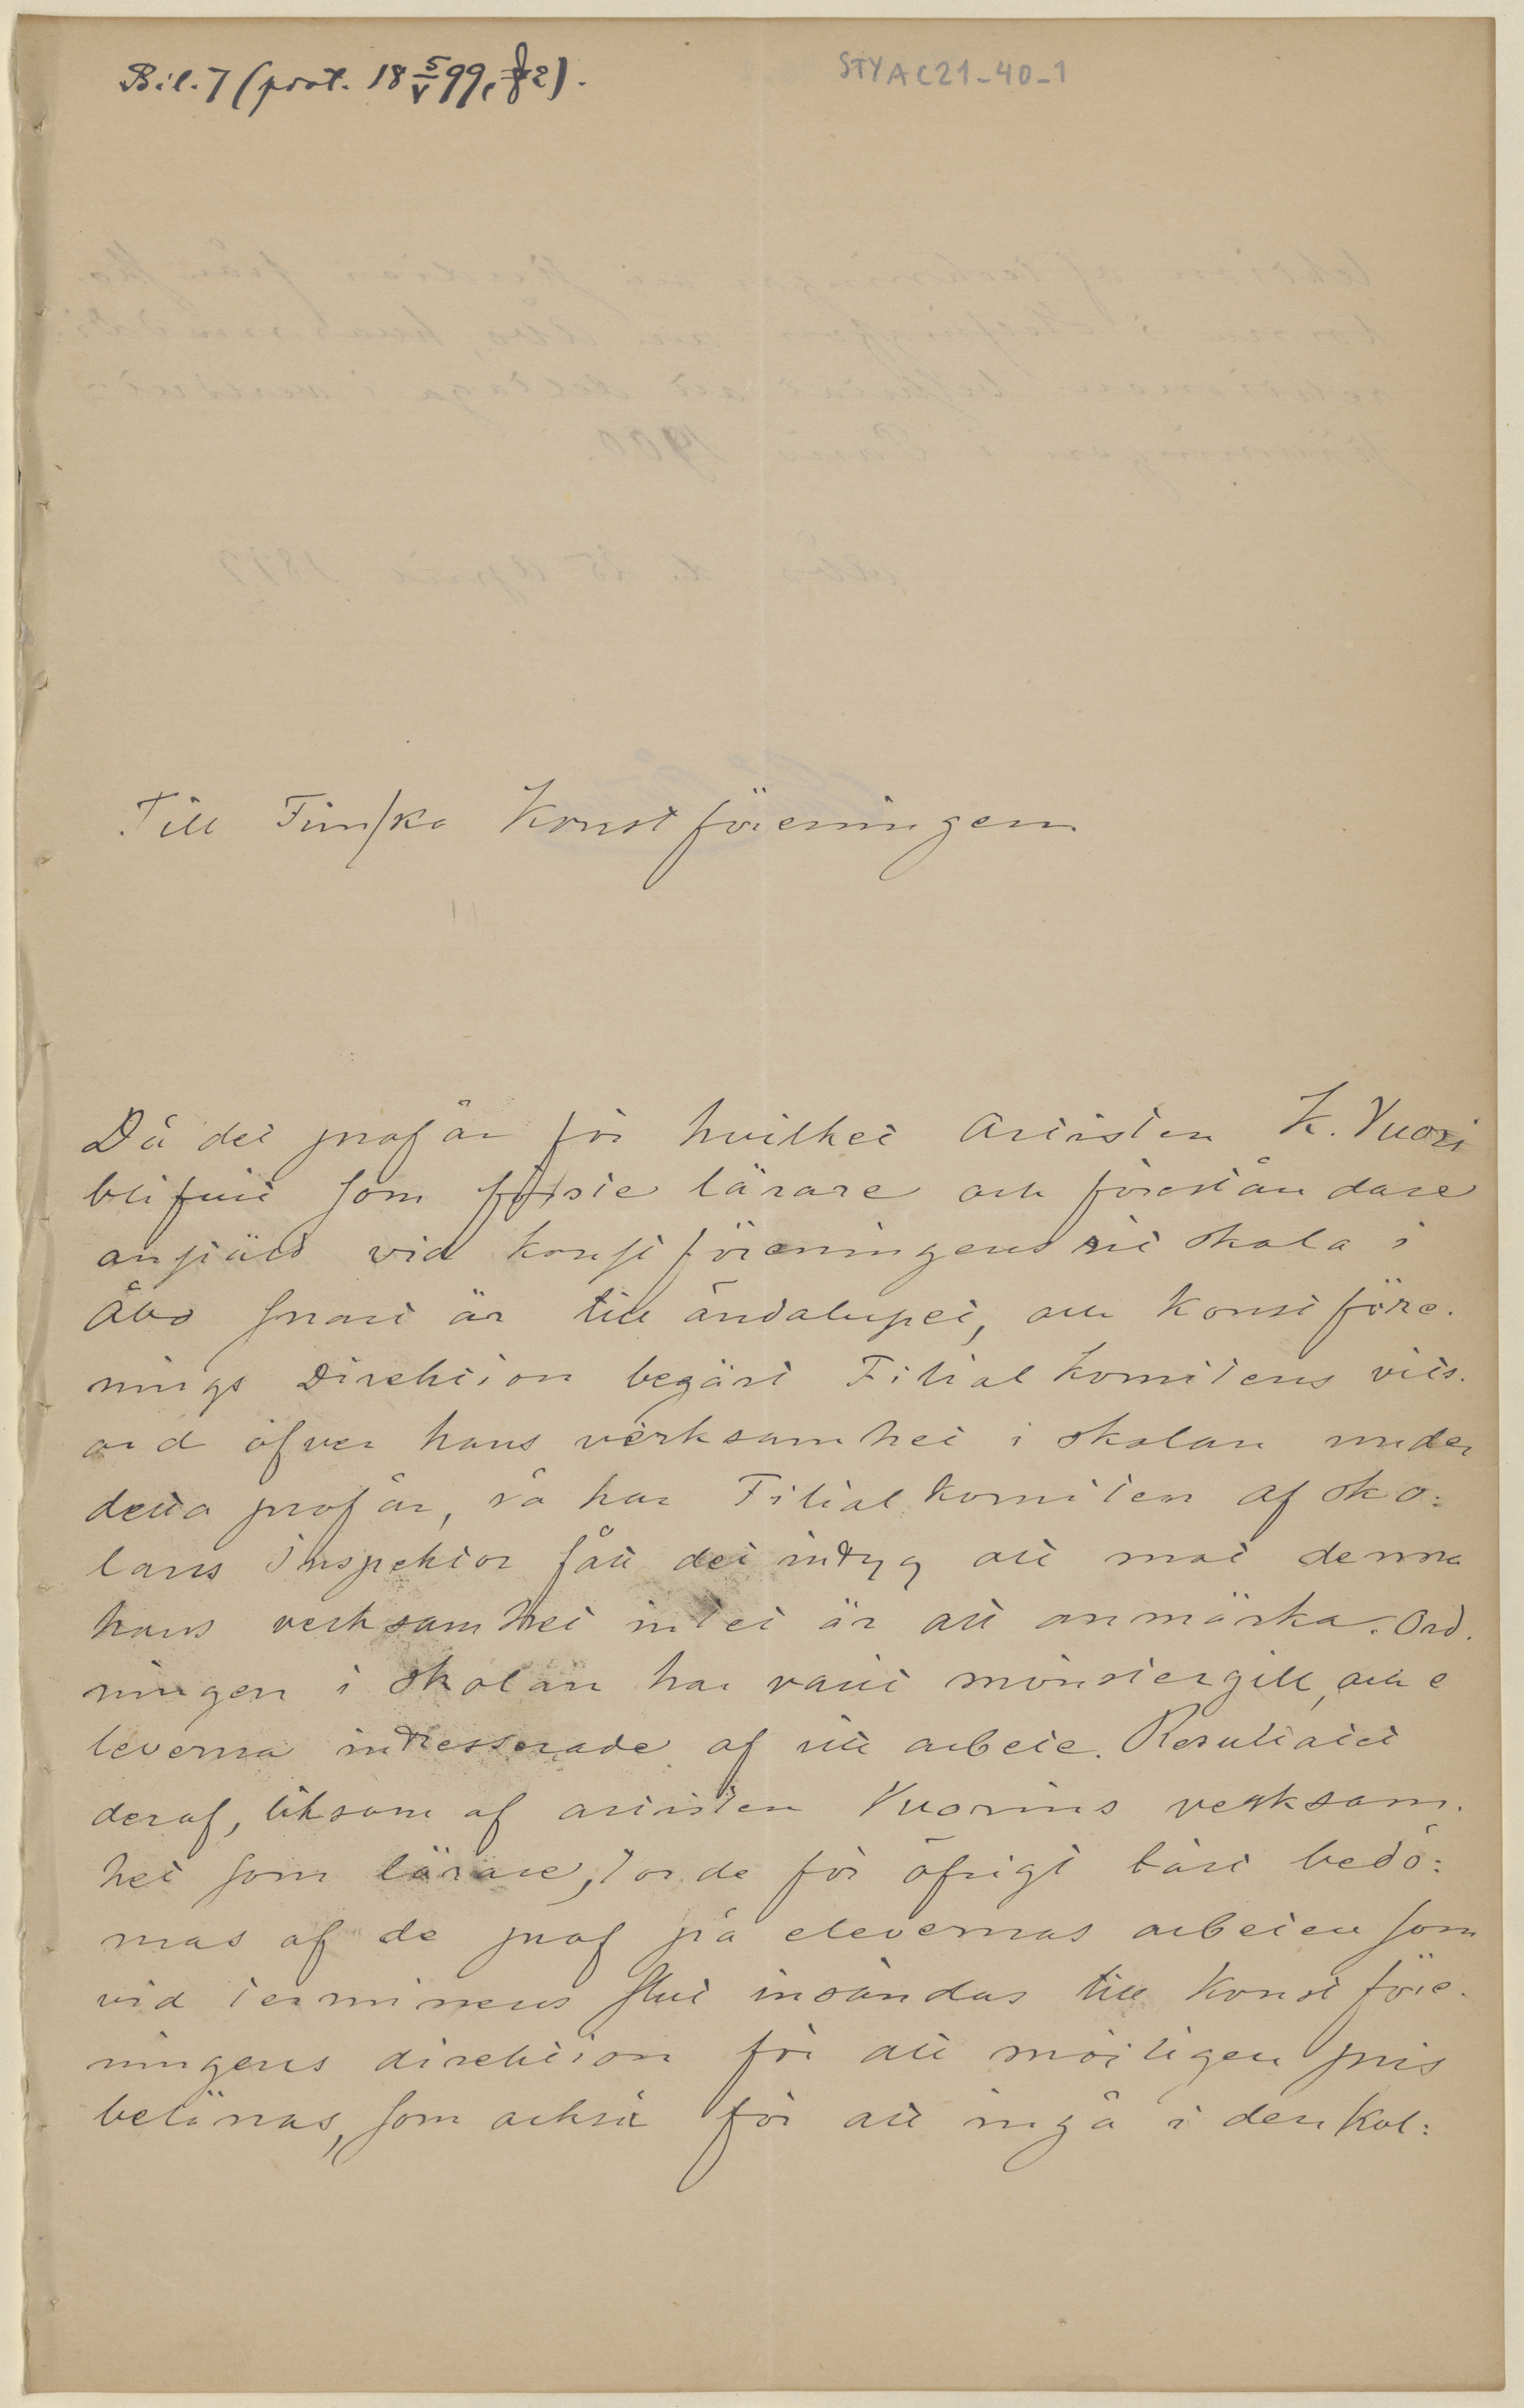 Bil. 7 (prot. 18 5/V 99, § 2).
STYA C21-40-1
Till Finska Konstföreningen
Då det profår för hvilket Artisten K. Vuori
blifvit som förste lärare och föreståndare
anstäld vid konstföreningens rit skola i
Åbo snart är till ändalupet, och Konstföre.
nings Direktion begärt Filial komitens vits.
ord öfver hans verksamhet i skolan under
detta profår, så har Filial komiten af sko:
lans Inspektor fått det intyg att mot denna
hans verksamhet intet är att anmärka. Ord.
ningen i skolan har varit mönstergill, och e
leverna intresserade af sitt arbete. Resultatet
deraf, liksom af artisten Vuorins verksam.
het som lärare, torde för öfrigt bäst bedö:
mas af de prof på elevernas arbeten som
vid terminens slut insändas till Konstföre.
ningens direktion för att möjligen pris
belönas, som också för att ingå i den kol: